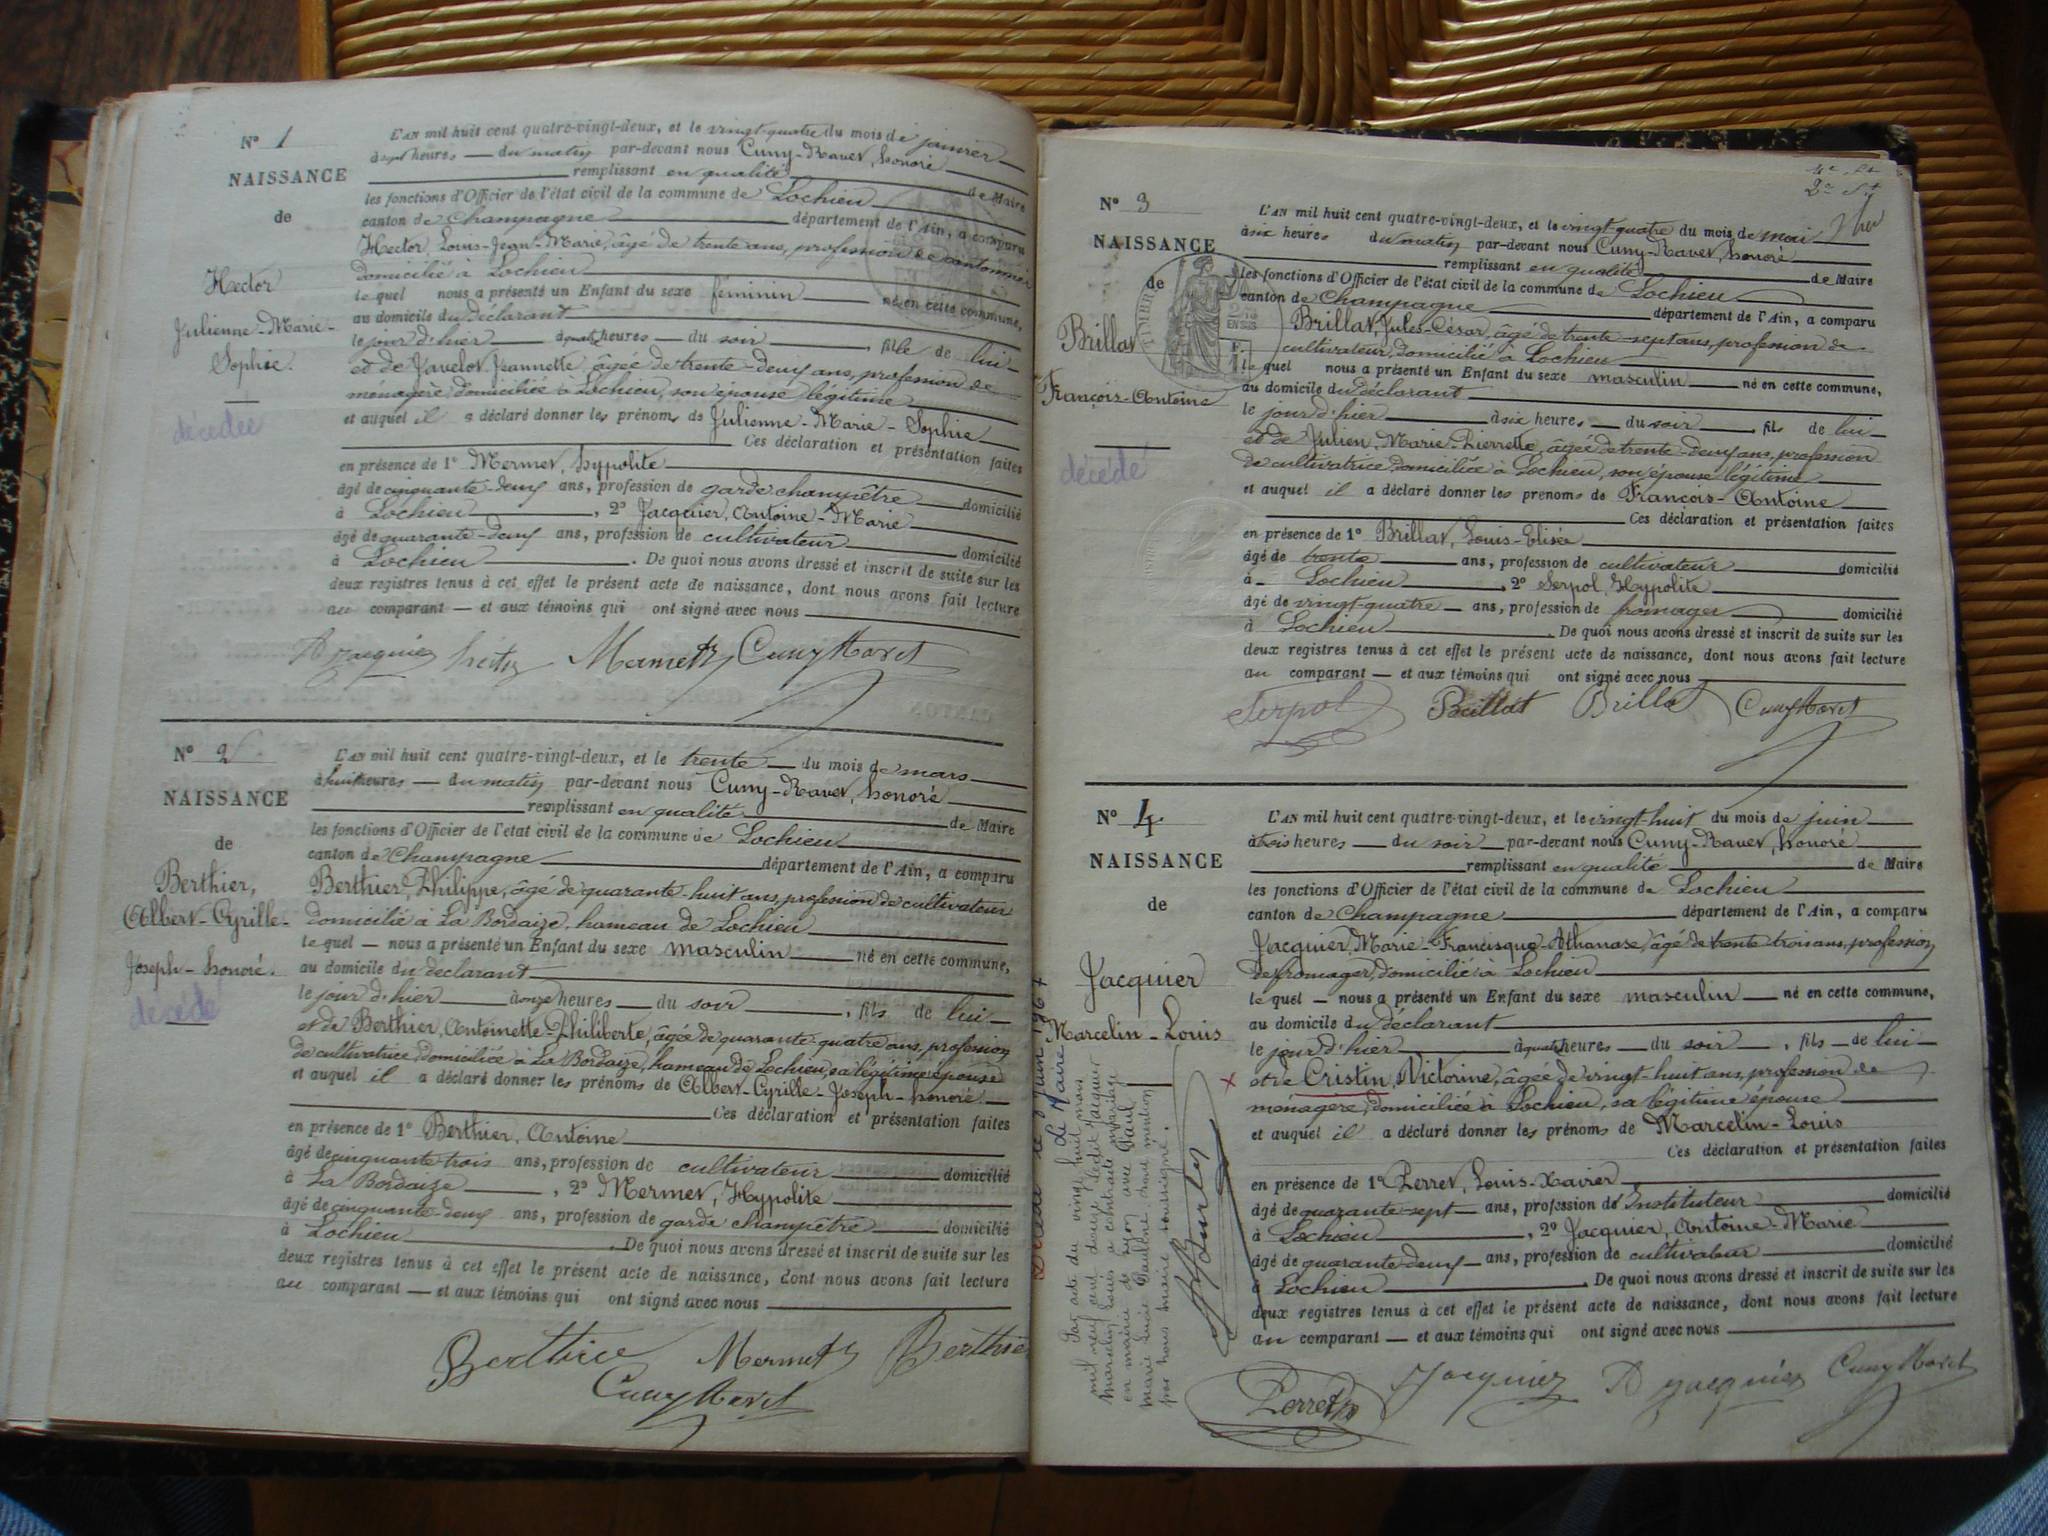 N° 1
NAISSANCE
de
Hector
Julienne-Marie-
Sophie.
décédée
L'AN mil huit cent quatre-vingt-deux, et le vingt-quatre du mois de janvier
à sept heures du matin par-devant nous Cuny-Ravet, honoré
remplissant en qualité de Maire
les fonctions d'Officier de l'état civil de la commune de Lochieu
canton de Champagne département de l'Ain, a comparu
Hector, Louis-Jean-Marie, âgé de trente ans, profession de cantonnier
domicilié à Lochieu
lequel nous a présenté un Enfant du sexe féminin né en cette commune,
au domicile du déclarant
le jour d'hier à quatre heures du soir, fille de lui
et de Javelot Jeannette, âgée de trente-deux ans, profession de
ménagère, domiciliée à Lochieu, son épouse légitime
et auquel il a déclaré donner les prénoms de Julienne-Marie-Sophie
Ces déclaration et présentation faites
en présence de 1° Mermet, hypolite
âgé de cinquante-deux ans, profession de garde champêtre domicilié
à Lochieu, 2° Jacquier, Antoine-Marie
âgé de quarante-deux ans, profession de cultivateur domicilié
à Lochieu. De quoi nous avons dressé et inscrit de suite sur les
deux registres tenus à cet effet le présent acte de naissance, dont nous avons fait lecture
au comparant — et aux témoins qui ont signé avec nous
A Jacquier Hector Mermet Cuny Ravet
N° 2
NAISSANCE
de
Berthier,
Albert-Cyrille-
Joseph-honoré.
décédé
L'AN mil huit cent quatre-vingt-deux, et le trente du mois de mars
à huit heures — du matin par-devant nous Cuny-Ravet, honoré
remplissant en qualité de Maire
les fonctions d'Officier de l'état civil de la commune de Lochieu
canton de Champagne département de l'Ain, a comparu
Berthier, Philippe, âgé de quarante-huit ans, profession de cultivateur
domicilié à La Bordaize, hameau de Lochieu
lequel — nous a présenté un Enfant du sexe masculin né en cette commune,
au domicile du déclarant
le jour d'hier à onze heures — du soir, fils de lui
et de Berthier, Antoinette-Philiberte, âgée de quarante-quatre ans, profession
de cultivatrice, domiciliée à La Bordaize, hameau de Lochieu, sa légitime épouse
et auquel il a déclaré donner les prénoms de Albert-Cyrille-Joseph-honoré.
Ces déclaration et présentation faites
en présence de 1° Berthier, Antoine
âgé de cinquante trois ans, profession de cultivateur domicilié
à La Bordaize, 2° Mermet, Hypolite
âgé de cinquante-deux ans, profession de garde champêtre domicilié
à Lochieu. De quoi nous avons dressé et inscrit de suite sur les
deux registres tenus à cet effet le présent acte de naissance, dont nous avons fait lecture
au comparant — et aux témoins qui ont signé avec nous
Berthier Mermet Berthier
Cuny Ravet
N° 3
NAISSANCE
de
Brillat
François-Antoine
décédé
L'AN mil huit cent quatre-vingt-deux, et le vingt-quatre du mois de mai
à six heures du matin par-devant nous Cuny-Ravet, honoré
remplissant en qualité de Maire
les fonctions d'Officier de l'état civil de la commune de Lochieu
canton de Champagne département de l'Ain, a comparu
Brillat, Jules-César, âgé de trente-sept ans, profession de
cultivateur, domicilié à Lochieu
lequel nous a présenté un Enfant du sexe masculin né en cette commune,
au domicile du déclarant
le jour d'hier à six heures — du soir, fils de lui
et de Julien, Marie-Pierrette, âgée de trente-deux ans, profession
de cultivatrice, domiciliée à Lochieu, son épouse légitime
et auquel il a déclaré donner les prénoms de François-Antoine
Ces déclaration et présentation faites
en présence de 1° Brillat, Louis-Elisée
âgé de trente ans, profession de cultivateur domicilié
à Lochieu, 2° Serpol, Hypolite
âgé de vingt-quatre ans, profession de fromager domicilié
à Lochieu. De quoi nous avons dressé et inscrit de suite sur les
deux registres tenus à cet effet le présent acte de naissance, dont nous avons fait lecture
au comparant — et aux témoins qui ont signé avec nous
Serpol Brillat Brillat Cuny Ravet
N° 4
NAISSANCE
de
Jacquier
Marcelin-Louis
L'AN mil huit cent quatre-vingt-deux, et le vingt huit du mois de juin
à trois heures — du soir par-devant nous Cuny-Ravet, honoré
remplissant en qualité de Maire
les fonctions d'Officier de l'état civil de la commune de Lochieu
canton de Champagne département de l'Ain, a comparu
Jacquier, Marie-Francisque-Athanase, âgé de trente trois ans, profession
de fromager, domicilié à Lochieu
lequel — nous a présenté un Enfant du sexe masculin né en cette commune,
au domicile du déclarant
le jour d'hier à quatre heures — du soir, fils de lui
et de Cristin, Victorine, âgée de vingt-huit ans, profession de
ménagère, domiciliée à Lochieu, sa légitime épouse
et auquel il a déclaré donner les prénoms de Marcelin-Louis
Ces déclaration et présentation faites
en présence de 1° Perret, Louis-Xavier
âgé de quarante-sept ans, profession d'Instituteur domicilié
à Lochieu, 2° Jacquier, Antoine-Marie
âgé de quarante-deux ans, profession de cultivateur domicilié
à Lochieu. De quoi nous avons dressé et inscrit de suite sur les
deux registres tenus à cet effet le présent acte de naissance, dont nous avons fait lecture
au comparant — et aux témoins qui ont signé avec nous
Perret Jacquier A Jacquier Cuny Ravet
Décédé le 3 juin 1967
Le Maire
Par acte du vingt huit mars
mil neuf cent douze, ledit Jacquier
Marcelin Louis a contracté mariage
en mairie de Lyon avec Paul
Marie Lucie Pauline, dont mention
par nous maire soussigné.